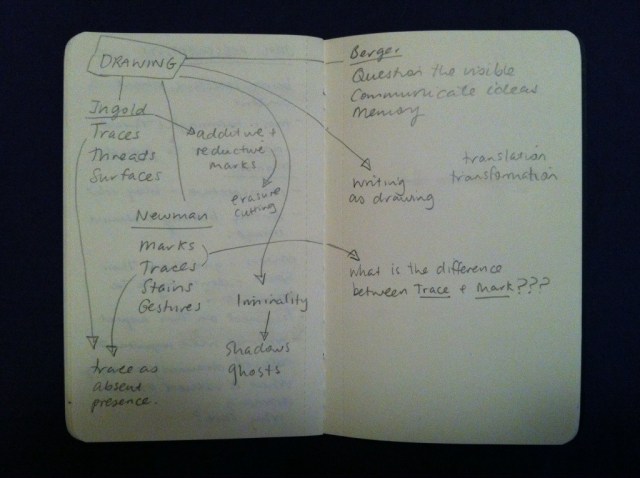 DRAWING
Ingold
Traces
Threads
Surfaces
additive +
reductive
marks
erasure
cutting
Newman
Marks
Traces
Stains
Gestures
liminality
Shadows
ghosts
trace as
absent
presence.
Berger
Question the visible
Communicate ideas
Memory
writing
as drawing
translation
transformation
what is the difference
between Trace + Mark???